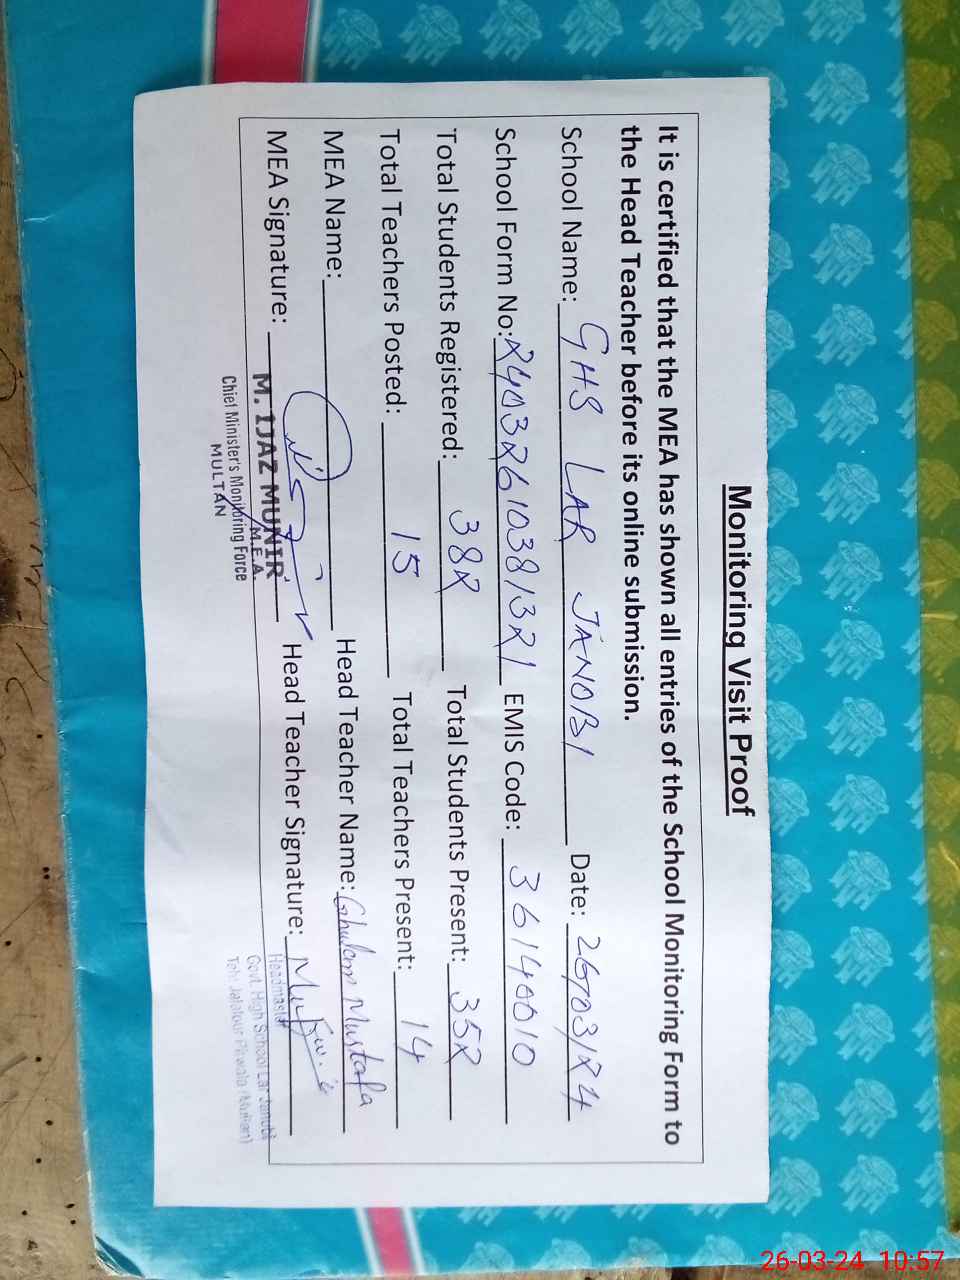 Monitoring Visit Proof
It is certified that the MEA has shown all entries of the School Monitoring Form to
the Head Teacher before its online submission.
School Name: GHS LAR JANOBI Date: 26/03/24
School Form No: 24032610381321 EMIS Code: 36140010
Total Students Registered: 382 Total Students Present: 352
Total Teachers Posted: 15 Total Teachers Present: 14
MEA Name: Head Teacher Name: Ghulam Mustafa
MEA Signature: Head Teacher Signature:
M. IJAZ MUNIR
M.E.A.
Chief Minister's Monitoring Force
MULTAN
Headmaster
Govt. High School Lar Janubi
Teh: Jalalpur Pirwala (Multan)
26-03-24 10:57